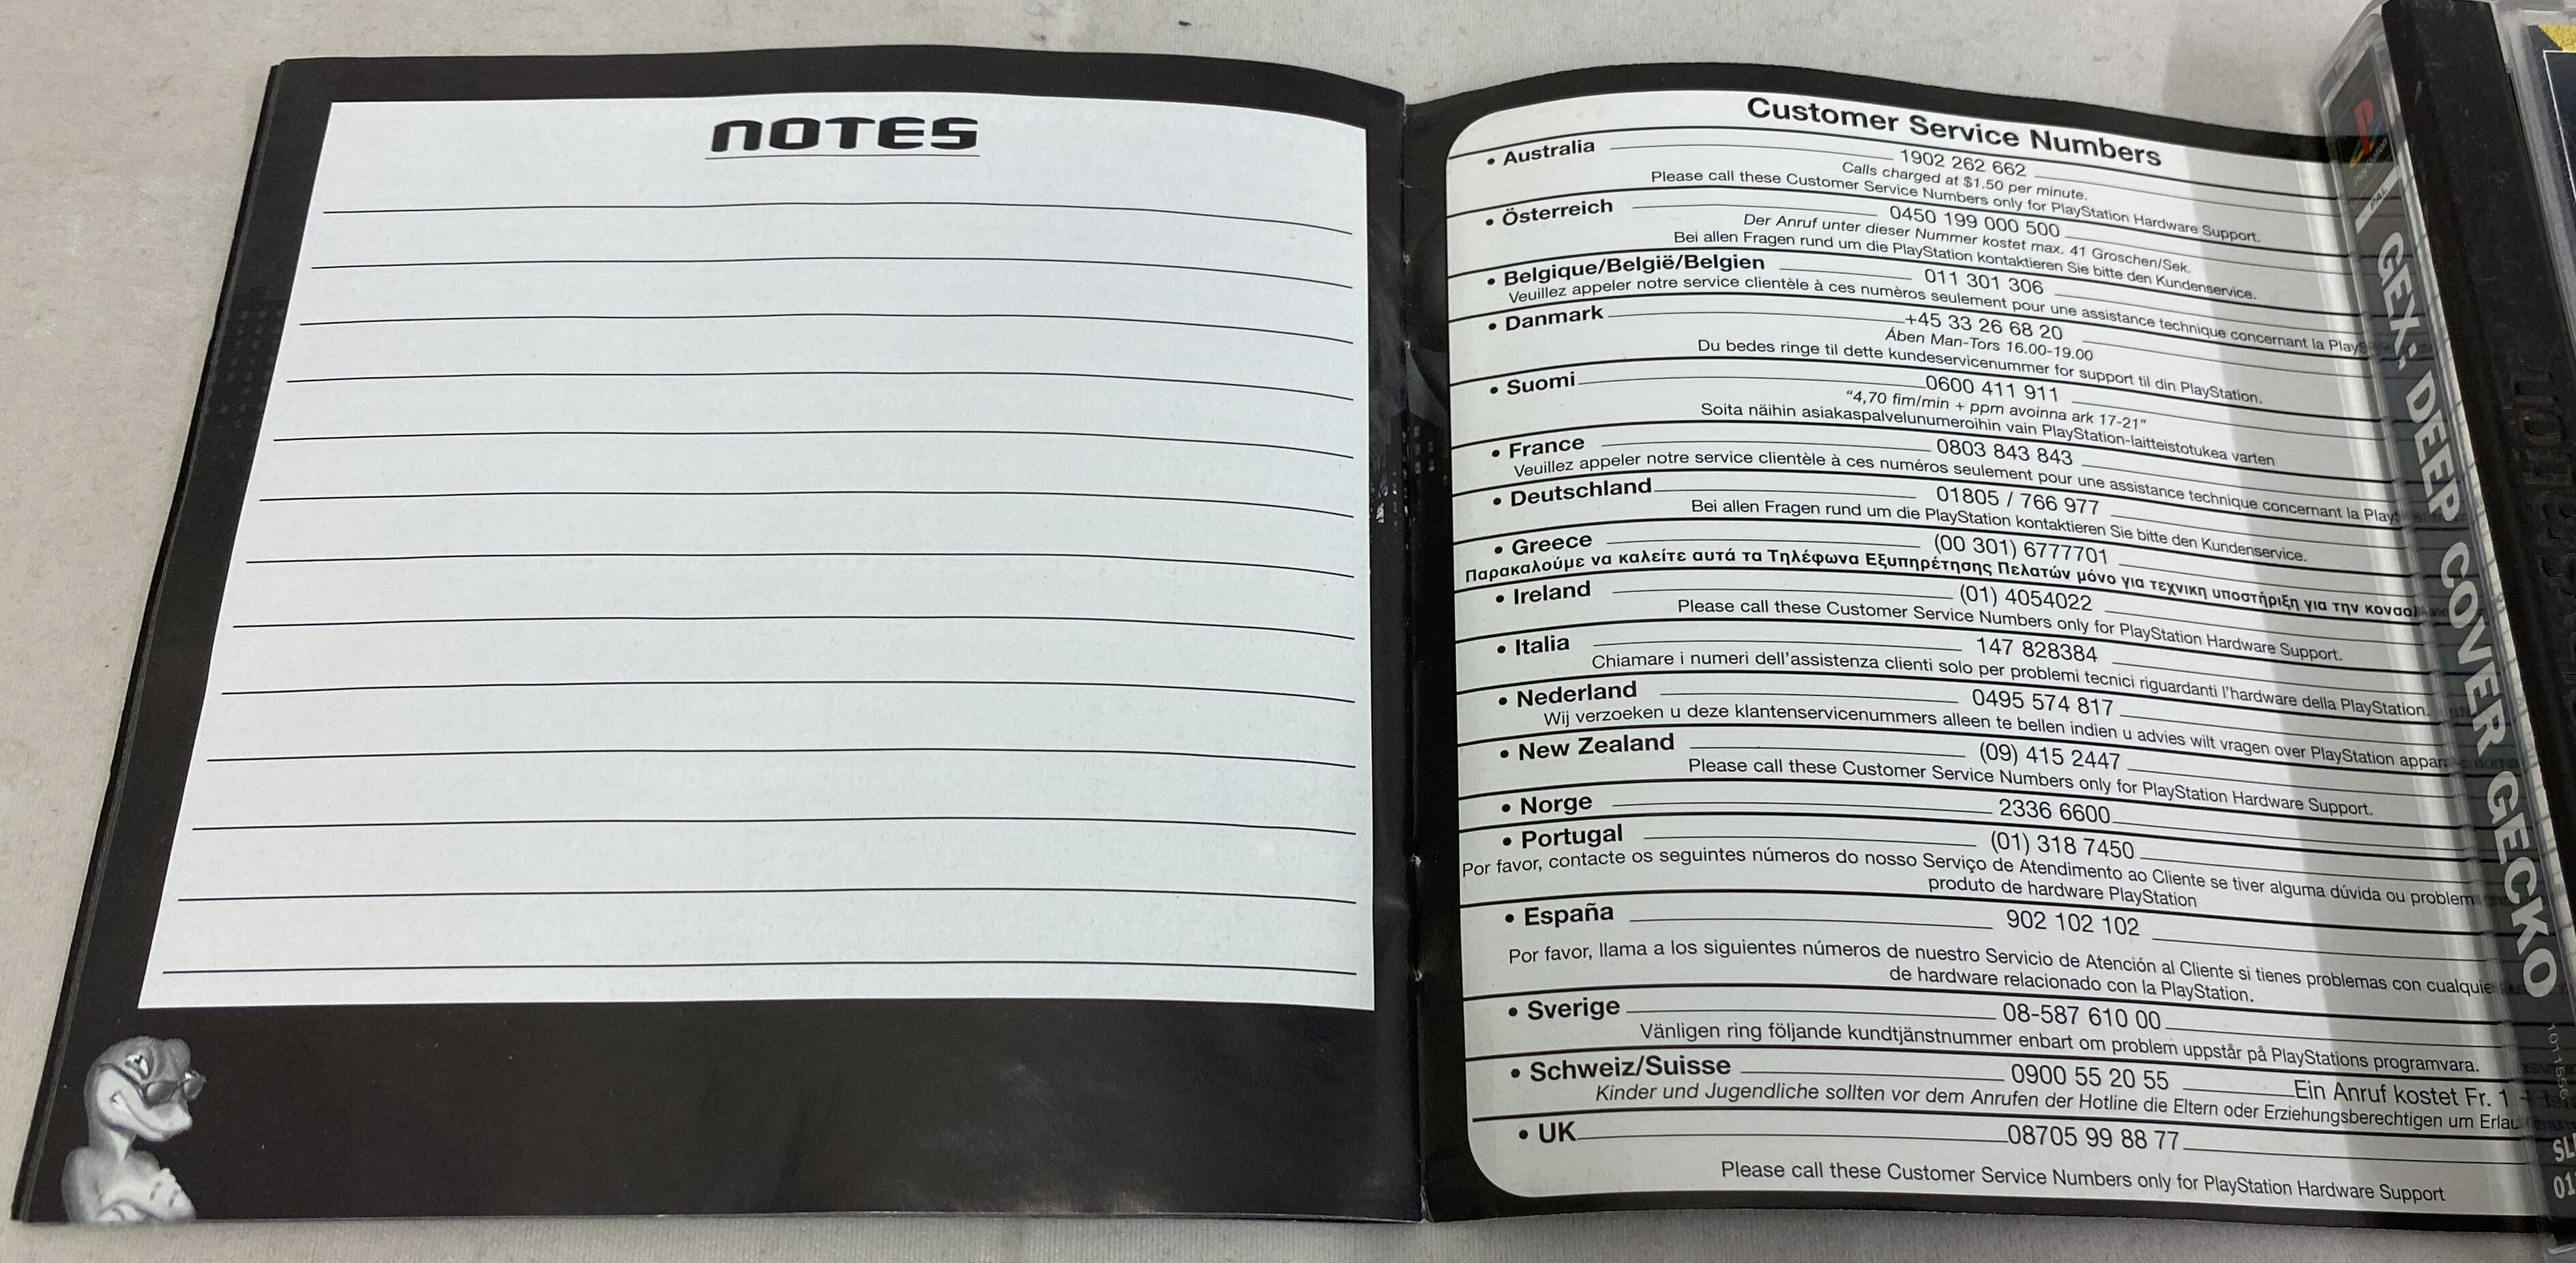 NOTES
Customer Service Numbers
• Australia 1902 262 662
Calls charged at $1.50 per minute.
Please call these Customer Service Numbers only for PlayStation Hardware Support.
• Österreich 0450 199 000 500
Der Anruf unter dieser Nummer kostet max. 41 Groschen/Sek.
Bei allen Fragen rund um die PlayStation kontaktieren Sie bitte den Kundenservice.
• Belgique/België/Belgien 011 301 306
Veuillez appeler notre service clientèle à ces numèros seulement pour une assistance technique concernant la
• Danmark +45 33 26 68 20
Áben Man-Tors 16.00-19.00
Du bedes ringe til dette kundeservicenummer for support til din PlayStation.
• Suomi 0600 411 911
"4,70 fim/min + ppm avoinna ark 17-21"
Soita näihin asiakaspalvelunumeroihin vain PlayStation-laitteistotukea varten
• France 0803 843 843
Veuillez appeler notre service clientèle à ces numéros seulement pour une assistance technique concernant la
• Deutschland 01805 / 766 977
Bei allen Fragen rund um die PlayStation kontaktieren Sie bitte den Kundenservice.
• Greece (00 301) 6777701
Παρακαλούμε να καλείτε αυτά τα Τηλέφωνα Εξυπηρέτησης Πελατών μόνο για τεχνικη υποστήριξη για την
• Ireland (01) 4054022
Please call these Customer Service Numbers only for PlayStation Hardware Support.
• Italia 147 828384
Chiamare i numeri dell'assistenza clienti solo per problemi tecnici riguardanti l'hardware della PlayStation.
• Nederland 0495 574 817
Wij verzoeken u deze klantenservicenummers alleen te bellen indien u advies wilt vragen over PlayStation
• New Zealand (09) 415 2447
Please call these Customer Service Numbers only for PlayStation Hardware Support.
• Norge 2336 6600
• Portugal (01) 318 7450
Por favor, contacte os seguintes números do nosso Serviço de Atendimento ao Cliente se tiver alguma dúvida ou
produto de hardware PlayStation
• España 902 102 102
Por favor, llama a los siguientes números de nuestro Servicio de Atención al Cliente si tienes problemas con
de hardware relacionado con la PlayStation.
• Sverige 08-587 610 00
Vänligen ring följande kundtjänstnummer enbart om problem uppstår på PlayStations programvara.
• Schweiz/Suisse 0900 55 20 55 Ein Anruf kostet Fr. 1
Kinder und Jugendliche sollten vor dem Anrufen der Hotline die Eltern oder Erziehungsberechtigen um
• UK 08705 99 88 77
Please call these Customer Service Numbers only for PlayStation Hardware Support
PAL
GEX: DEEP COVER GECKO